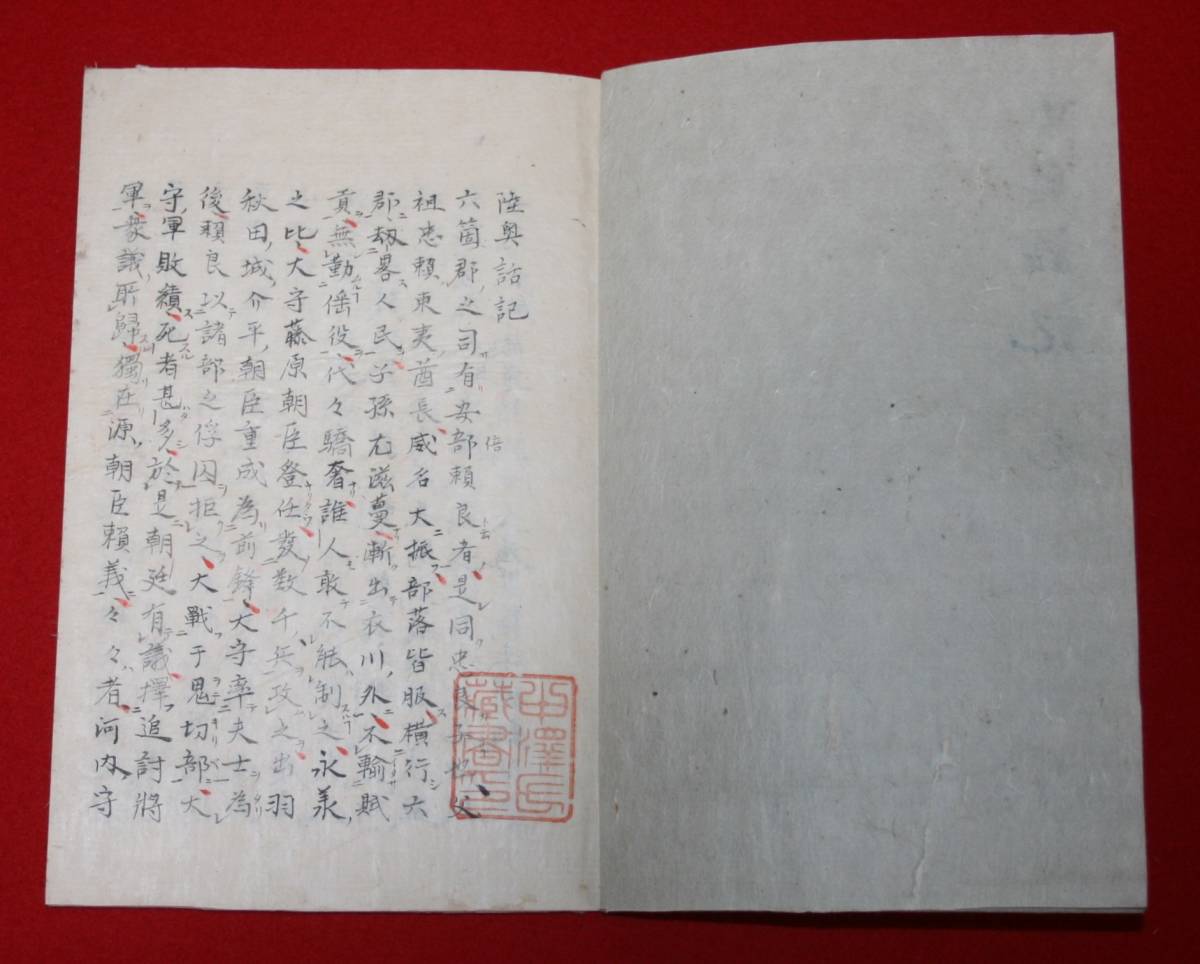 陸奥話記
六箇郡之司有安部賴良者是同忠良子也父
倍
祖忠賴東夷酋長威名大振部落皆服横行六
郡劫畧人民子孫尤滋蔓漸出衣川外不輸賦
貢無勤徭役代々驕奢誰人敢不能制之永承
之比大守藤原朝臣登任發数千兵攻之出羽
秋田城介平朝臣重成為前鋒大守率夫士為
後賴良以諸部之俘囚拒之大戰于鬼切部大
守軍敗績死者甚多於是朝廷有議擇追討將
軍衆議所歸獨在源朝臣賴義々々者河内守
中澤氏
藏書印